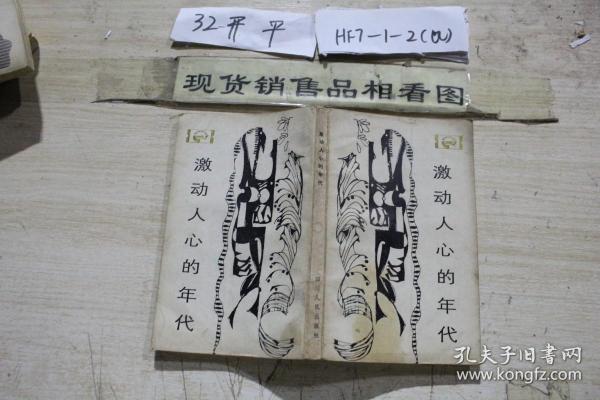 32开 平
HF7-1-2(W)
现货销售品相看图
激动人心的年代
激动人心的年代
四川人民出版社
激动人心的年代
孔夫子旧书网
www.kongfz.com